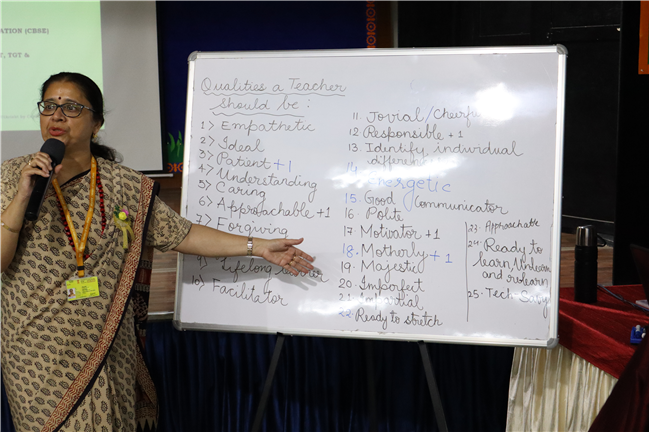 ATION (CBSE)
, TGT &
Qualities a Teacher
should be :
1) Empathetic
2) Ideal
3) Patient +1
4) Understanding
5) Caring
6) Approachable +1
7) Forgiving
9) Lifelong learner
10) Facilitator
11. Jovial/Cheerful
12 Responsible +1
13. Identify individual
differences
14. Energetic
15. Good Communicator
16. Polite
17 Motivator +1
18. Motherly +1
19. Majestic
20. Imperfect
21. Impartial
22. Ready to stretch
23. Approachable
24. Ready to
learn, Unlearn
and relearn
25. Tech Savy